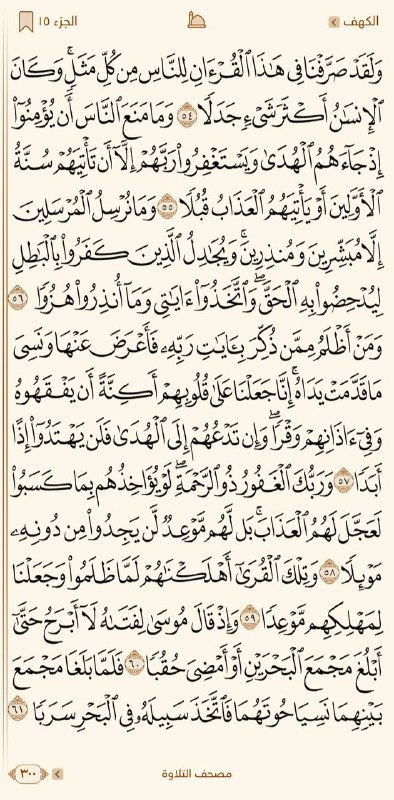 الكهف
الجزء ١٥
وَلَقَدْ صَرَّفْنَا فِي هَٰذَا ٱلْقُرْءَانِ لِلنَّاسِ مِن كُلِّ مَثَلٍۚ وَكَانَ
ٱلْإِنسَٰنُ أَكْثَرَ شَىْءٍ جَدَلًا ٥٤ وَمَا مَنَعَ ٱلنَّاسَ أَن يُؤْمِنُوٓا۟
إِذْ جَآءَهُمُ ٱلْهُدَىٰ وَيَسْتَغْفِرُوا۟ رَبَّهُمْ إِلَّآ أَن تَأْتِيَهُمْ سُنَّةُ
ٱلْأَوَّلِينَ أَوْ يَأْتِيَهُمُ ٱلْعَذَابُ قُبُلًا ٥٥ وَمَا نُرْسِلُ ٱلْمُرْسَلِينَ
إِلَّا مُبَشِّرِينَ وَمُنذِرِينَۚ وَيُجَٰدِلُ ٱلَّذِينَ كَفَرُوا۟ بِٱلْبَٰطِلِ
لِيُدْحِضُوا۟ بِهِ ٱلْحَقَّۖ وَٱتَّخَذُوٓا۟ ءَايَٰتِى وَمَآ أُنذِرُوا۟ هُزُوًا ٥٦
وَمَنْ أَظْلَمُ مِمَّن ذُكِّرَ بِـَٔايَٰتِ رَبِّهِۦ فَأَعْرَضَ عَنْهَا وَنَسِىَ
مَا قَدَّمَتْ يَدَاهُۚ إِنَّا جَعَلْنَا عَلَىٰ قُلُوبِهِمْ أَكِنَّةً أَن يَفْقَهُوهُ
وَفِىٓ ءَاذَانِهِمْ وَقْرًاۖ وَإِن تَدْعُهُمْ إِلَى ٱلْهُدَىٰ فَلَن يَهْتَدُوٓا۟ إِذًا
أَبَدًا ٥٧ وَرَبُّكَ ٱلْغَفُورُ ذُو ٱلرَّحْمَةِۖ لَوْ يُؤَاخِذُهُم بِمَا كَسَبُوا۟
لَعَجَّلَ لَهُمُ ٱلْعَذَابَۚ بَل لَّهُم مَّوْعِدٌ لَّن يَجِدُوا۟ مِن دُونِهِۦ
مَوْئِلًا ٥٨ وَتِلْكَ ٱلْقُرَىٰٓ أَهْلَكْنَٰهُمْ لَمَّا ظَلَمُوا۟ وَجَعَلْنَا
لِمَهْلِكِهِم مَّوْعِدًا ٥٩ وَإِذْ قَالَ مُوسَىٰ لِفَتَىٰهُ لَآ أَبْرَحُ حَتَّىٰٓ
أَبْلُغَ مَجْمَعَ ٱلْبَحْرَيْنِ أَوْ أَمْضِىَ حُقُبًا ٦٠ فَلَمَّا بَلَغَا مَجْمَعَ
بَيْنِهِمَا نَسِيَا حُوتَهُمَا فَٱتَّخَذَ سَبِيلَهُۥ فِى ٱلْبَحْرِ سَرَبًا ٦١
مصحف التلاوة
٣٠٠